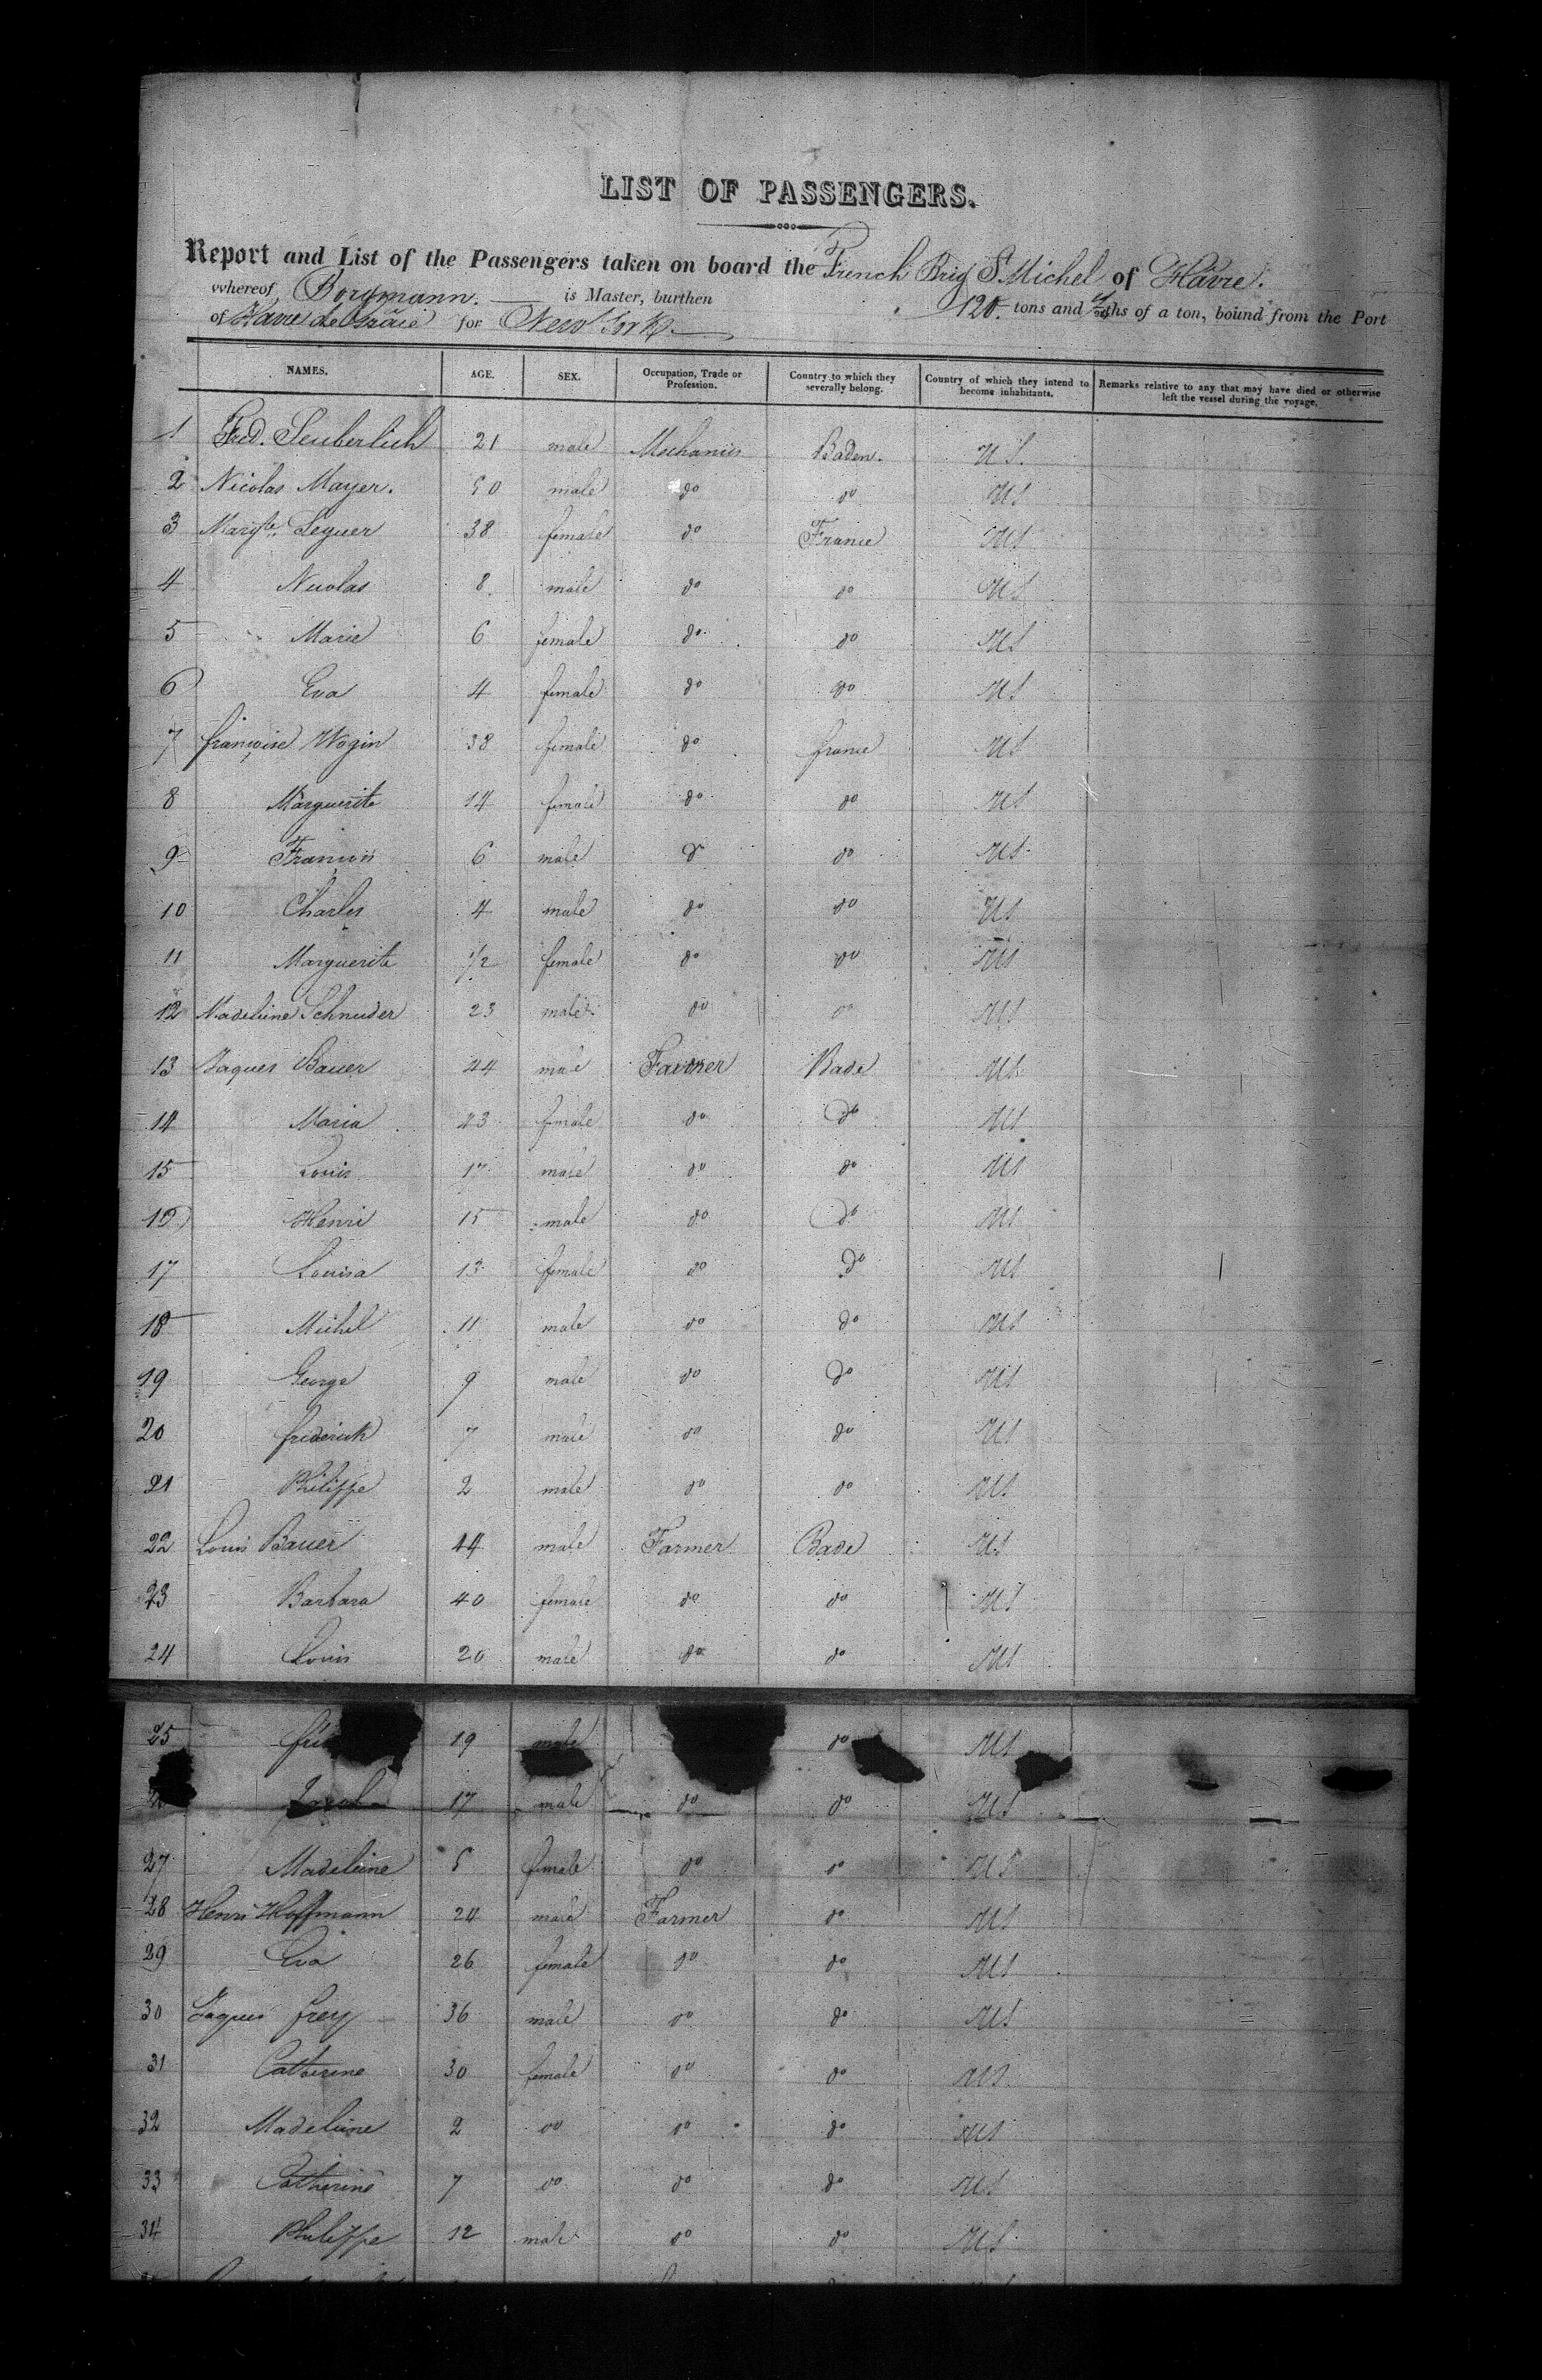 LIST OF PASSENGERS.
Report and List of the Passengers taken on board the French Brig St Michel of Hâvre.
whereof Borgmann. is Master, burthen 120 tons and ths of a ton, bound from the Port
of Havre de Grâce for New York
NAMES. AGE. SEX. Occupation, Trade or Profession. Country to which they severally belong. Country of which they intend to become inhabitants. Remarks relative to any that may have died or otherwise left the vessel during the voyage.
1 Fred. Seuberlich 21 male Mechanics Baden. US.
2 Nicolas Mayer. 50 male do do US
3 Margte. Seguer 38 female do France US
4 Nicolas 8 male do do US
5 Marie 6 female do do US
6 Eva 4 female do do US
7 françoise Wogin 38 female do france US
8 Marguerite 14 female do do US
9 François 6 male do do US
10 Charles 4 male do do US
11 Marguerite 1/2 female do do US
12 Madeleine Schneider 23 male do do US
13 Jaques Bauer 44 male Farmer Bade US
14 Maria 43 female do do US
15 Louis 17 male do do US
16 Henri 15 male do do US
17 Louisa 13 female do do US
18 Michel 11 male do do US
19 George 9 male do do US
20 frederick 7 male do do US
21 Philippe 2 male do do US
22 Louis Bauer 44 male Farmer Bade US
23 Barbara 40 female do do US
24 Louis 20 male do do US
25 19 male do US
17 male do do US
27 Madeleine 5 female do do US
28 Henri Hoffmann 24 male Farmer do US
29 Eva 26 female do do US
30 Jaques frey 36 male do do US
31 Catherine 30 female do do US
32 Madeleine 2 do do do US
33 Catherine 7 do do do US
34 Philippe 12 male do do US